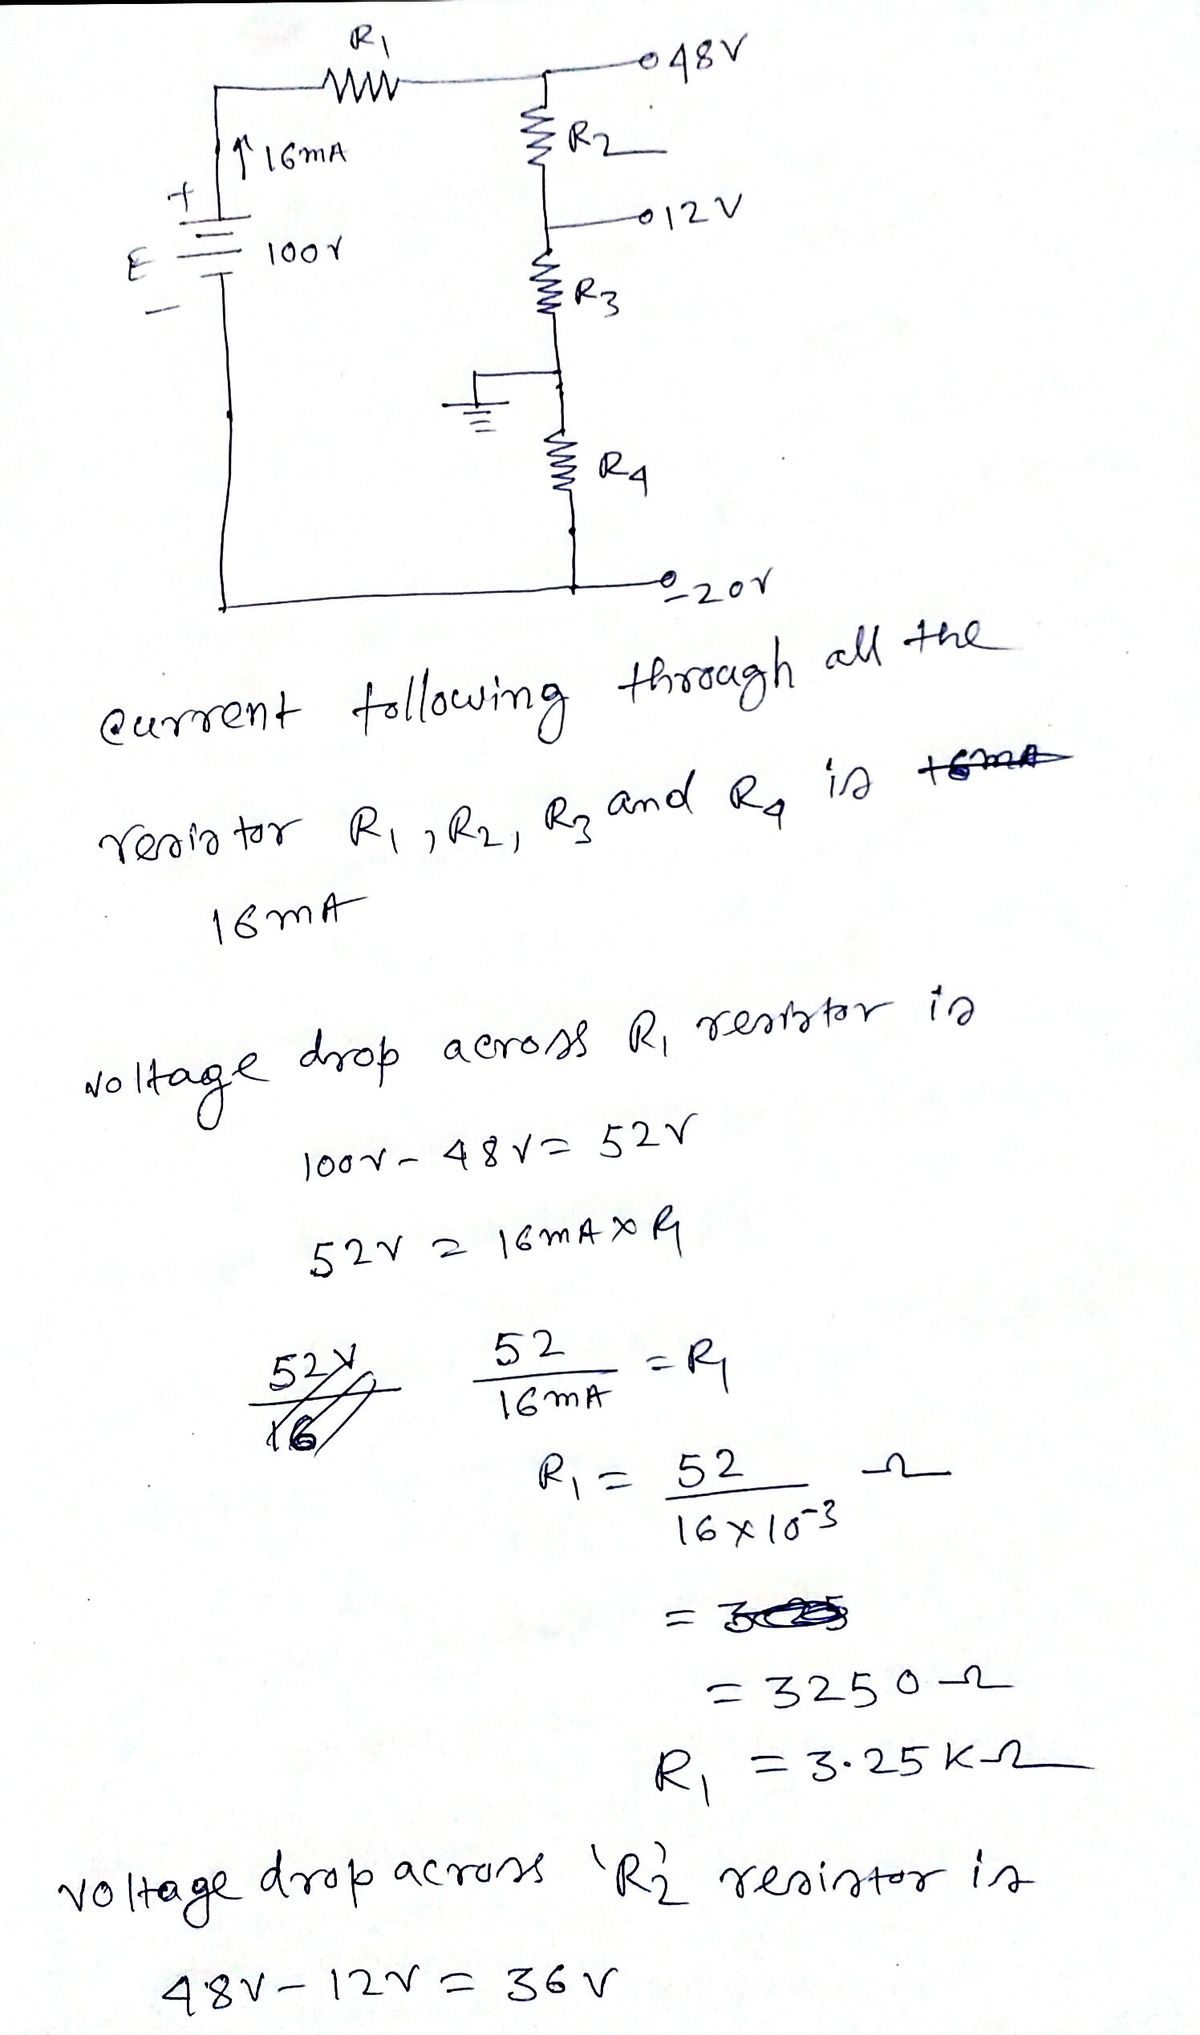 R1
48V
R2
↑16mA
+
12V
E
100V
R3
−
R4
-20V
current following through all the
resistor R1, R2, R3 and R4 is
16mA
voltage drop across R1 resistor is
100V - 48V = 52V
52V = 16mA × R1
52V/16 52/16mA = R1
R1 = 52/16×10⁻³ Ω
=
= 3250Ω
R1 = 3.25KΩ
voltage drop across 'R2' resistor is
48V - 12V = 36V